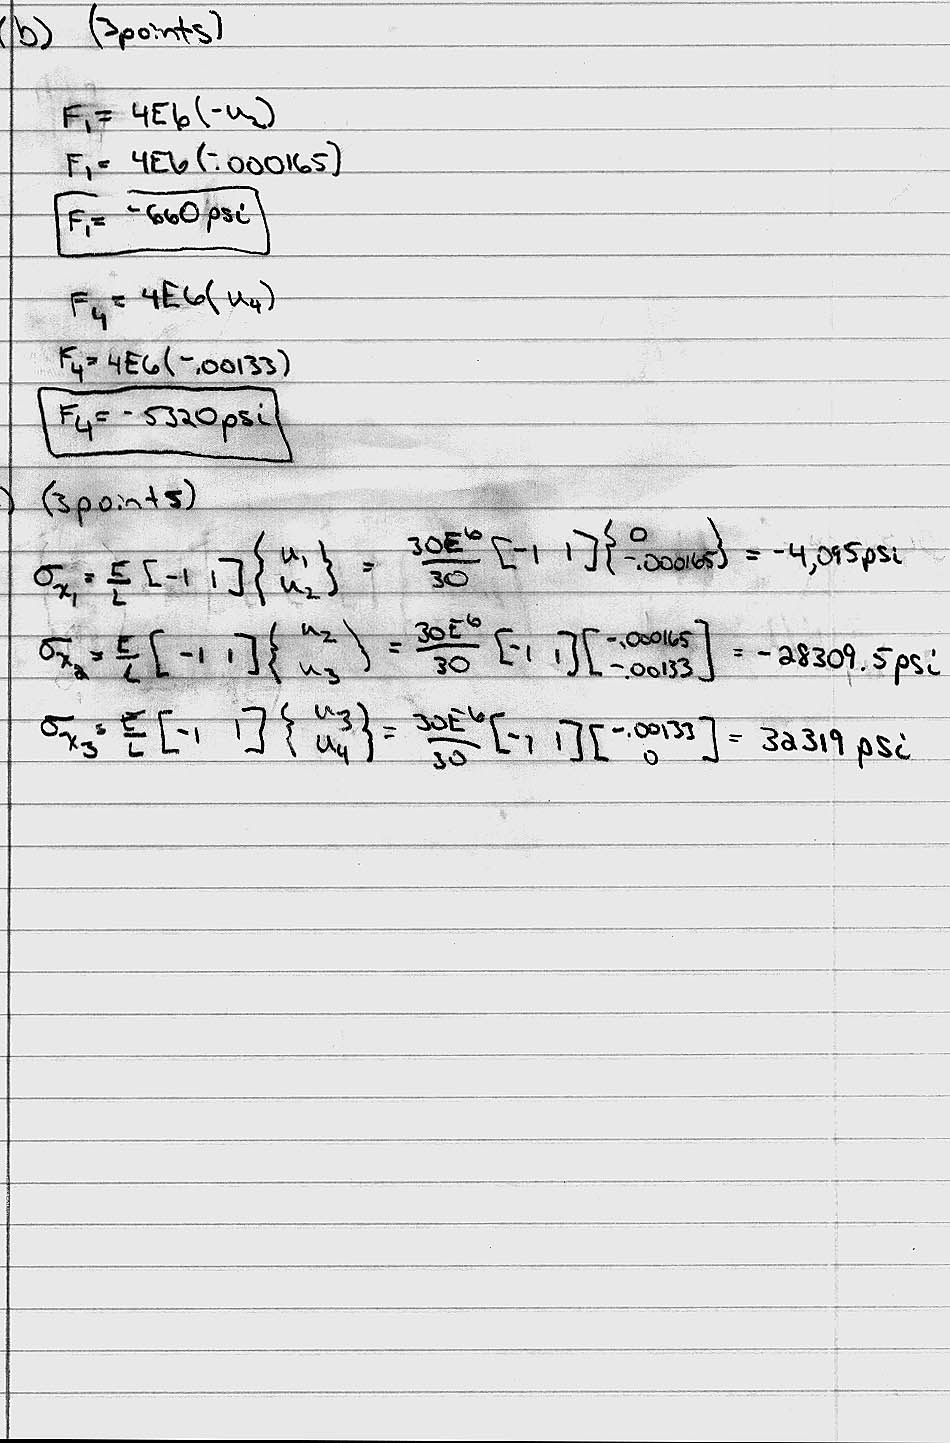 (b) (3points)
F₁= 4E6(-u₂)
F₁= 4E6(-.000165)
F₁= -660 psi
F₄ = 4E6(u₄)
F₄= 4E6(-.00133)
F₄= -5320 psi
) (3points)
σx₁ = E/L [-1 1]{u₁ u₂} = 30E6/30 [-1 1]{0 -.000165} = -4,095psi
σx₂ = E/L [-1 1]{u₂ u₃} = 30E6/30 [-1 1][-.000165 -.00133] = -28309.5psi
σx₃ = E/L [-1 1]{u₃ u₄} = 30E6/30 [-1 1][-.00133 0] = 32319 psi